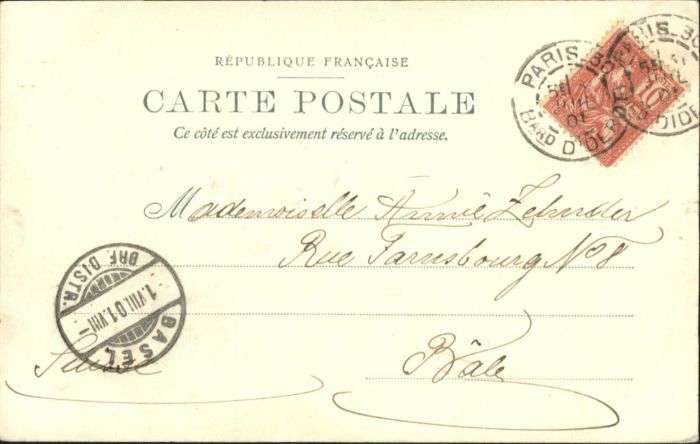 RÉPUBLIQUE FRANÇAISE
CARTE POSTALE
Ce côté est exclusivement réservé à l'adresse.
PARIS
BARD D'ORNANO
10
Mademoiselle Annie Zehnder
Rue Farnsbourg No 8
Bâle
Suisse
BASEL
BRF. DISTR.
1.VIII.01.VIII-